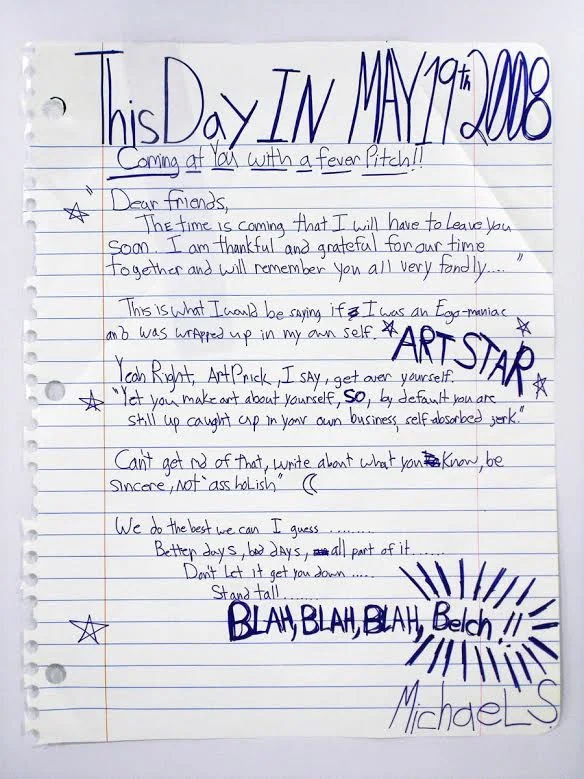 This Day IN MAY 19th 2008
Coming at You with a fever Pitch!!
"Dear friends,
The time is coming that I will have to leave you
soon. I am thankful and grateful for our time
together and will remember you all very fondly...."
This is what I would be saying if I was an Ego-maniac
and was wrapped up in my own self.
ART STAR
Yeah Right, Art Prick, I say, get over yourself.
"Yet you make art about yourself, SO, by default you are
still up caught up in your own business, self absorbed jerk."
Can't get rid of that, write about what you know, be
sincere, not "ass holish"
We do the best we can I guess .........
Better days, bad days, all part of it......
Don't let it get you down .....
Stand tall.......
BLAH, BLAH, BLAH, Belch!!
Michael S.